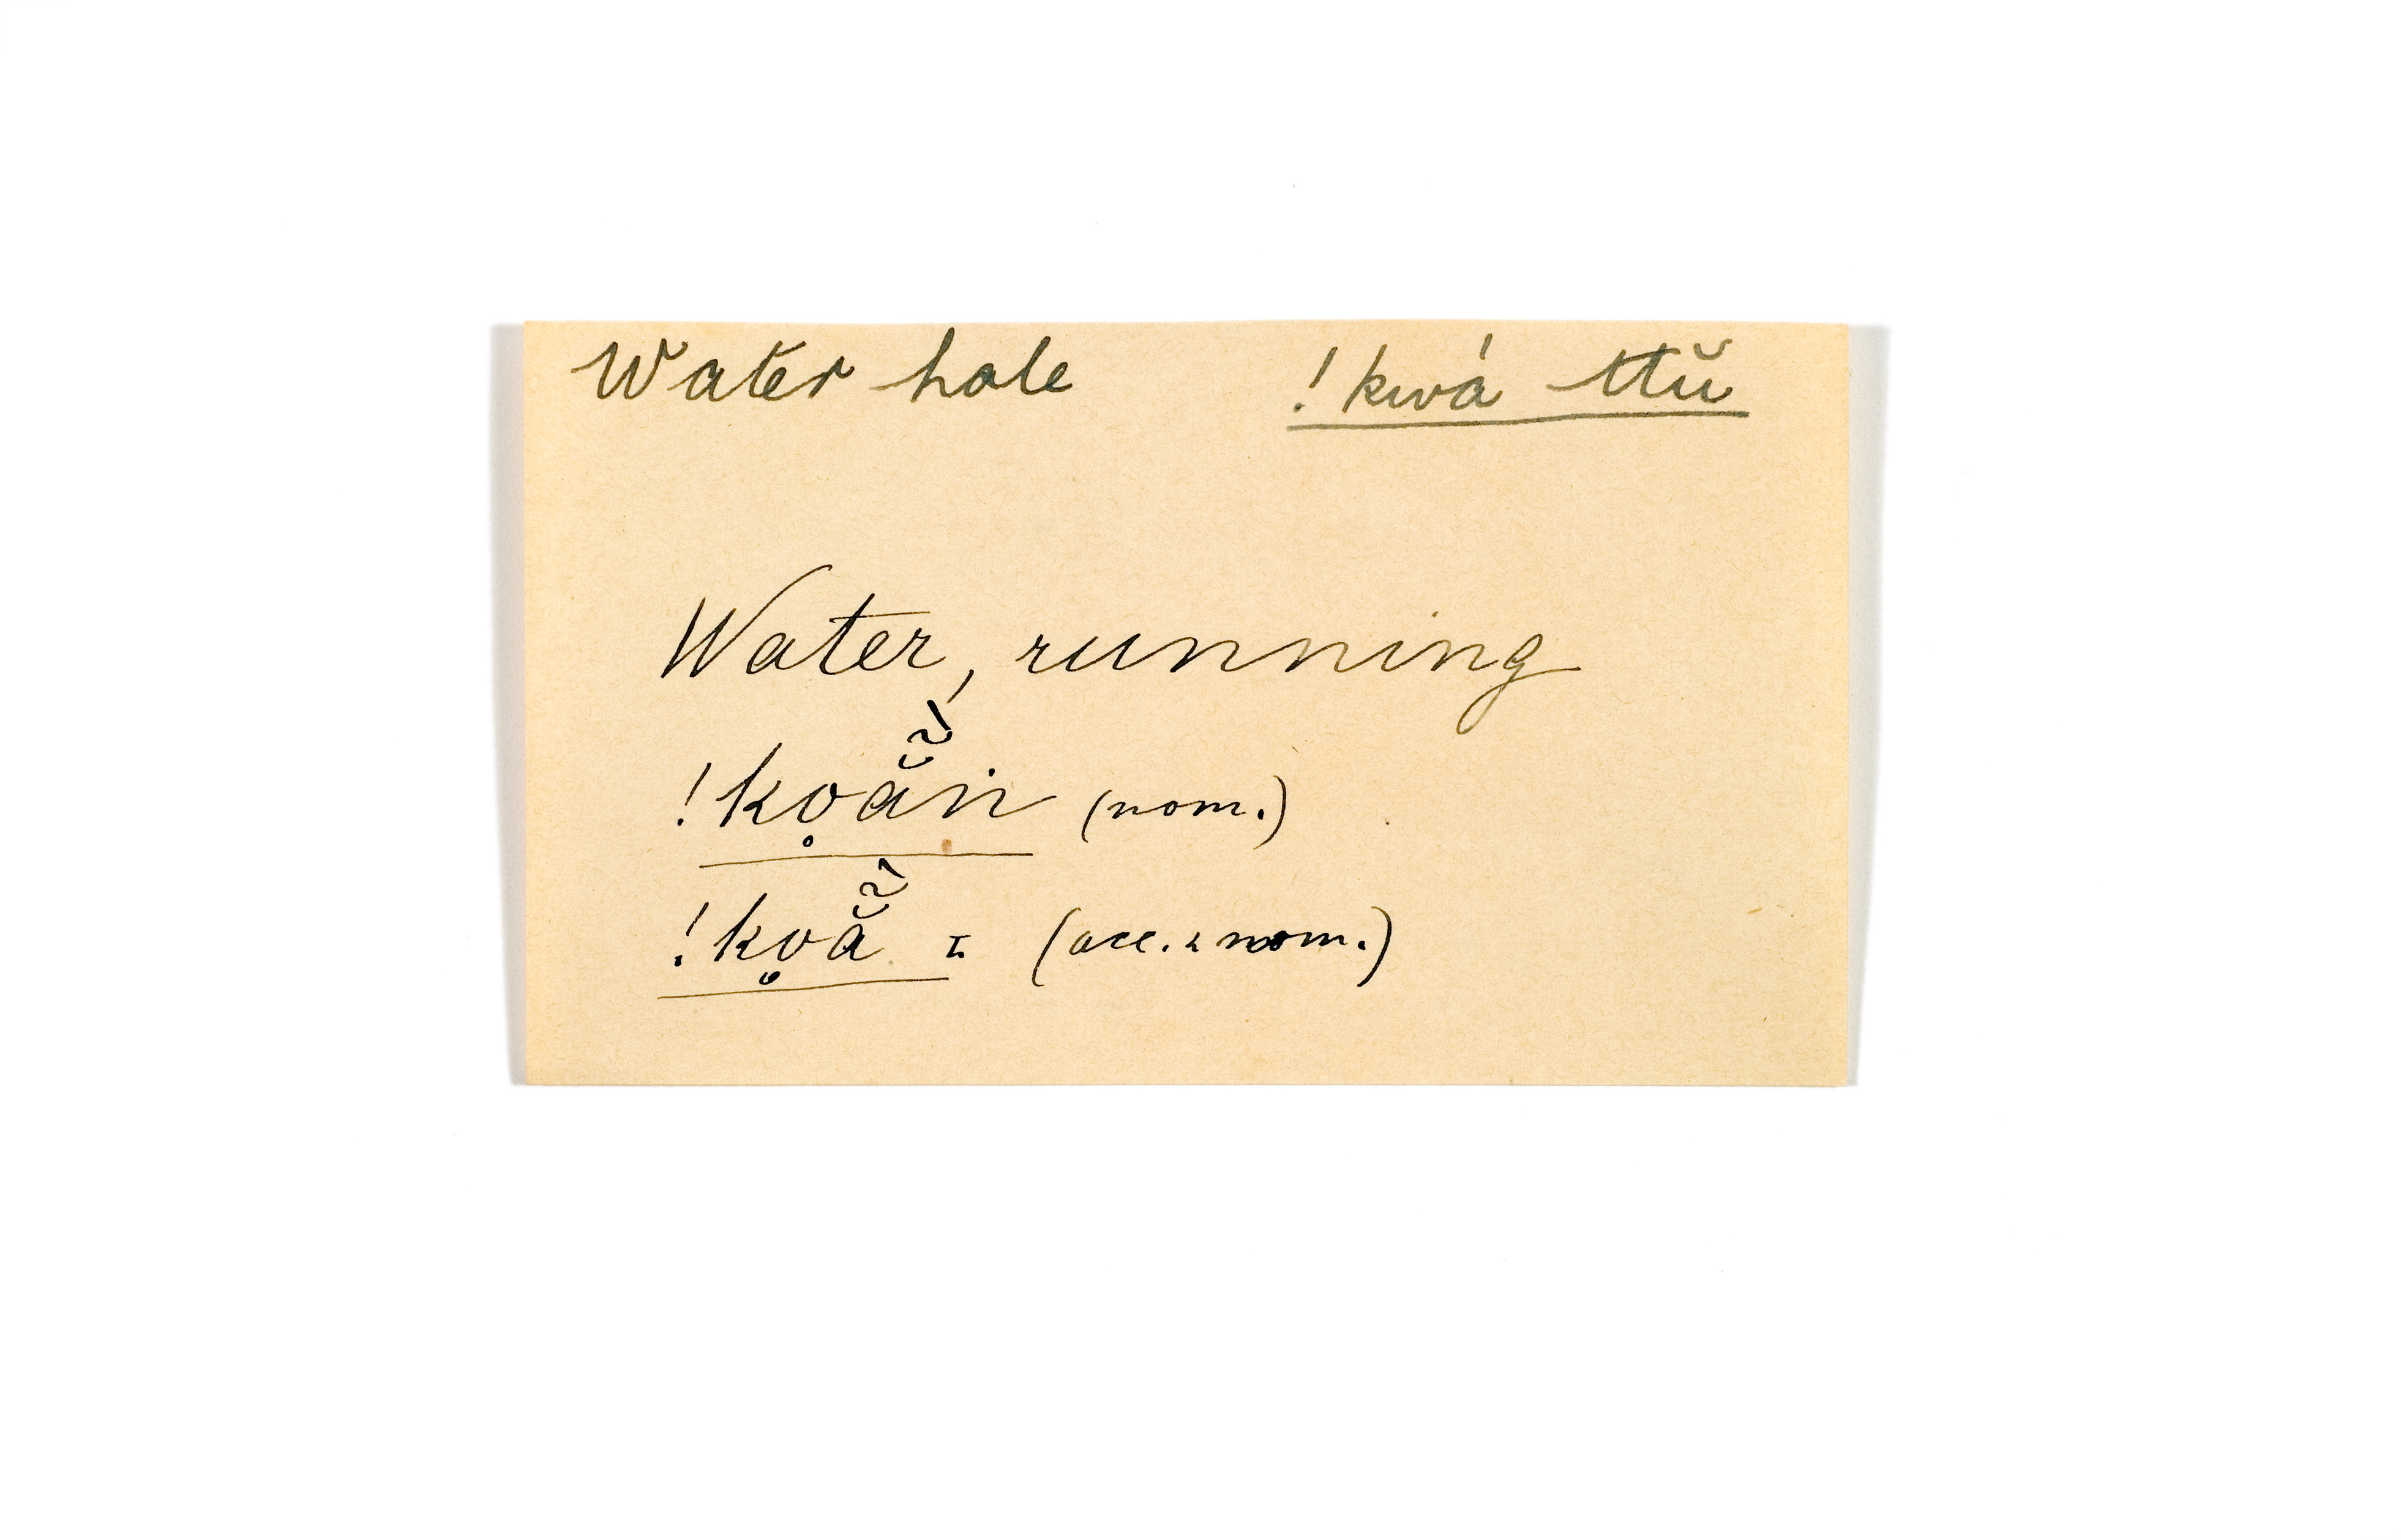 Water hole !kwá ttŭ
Water, running
!ko̥ā̆̃́n (nom.)
!ko̥ā̆̃́ ɪ (acc. & nom.)